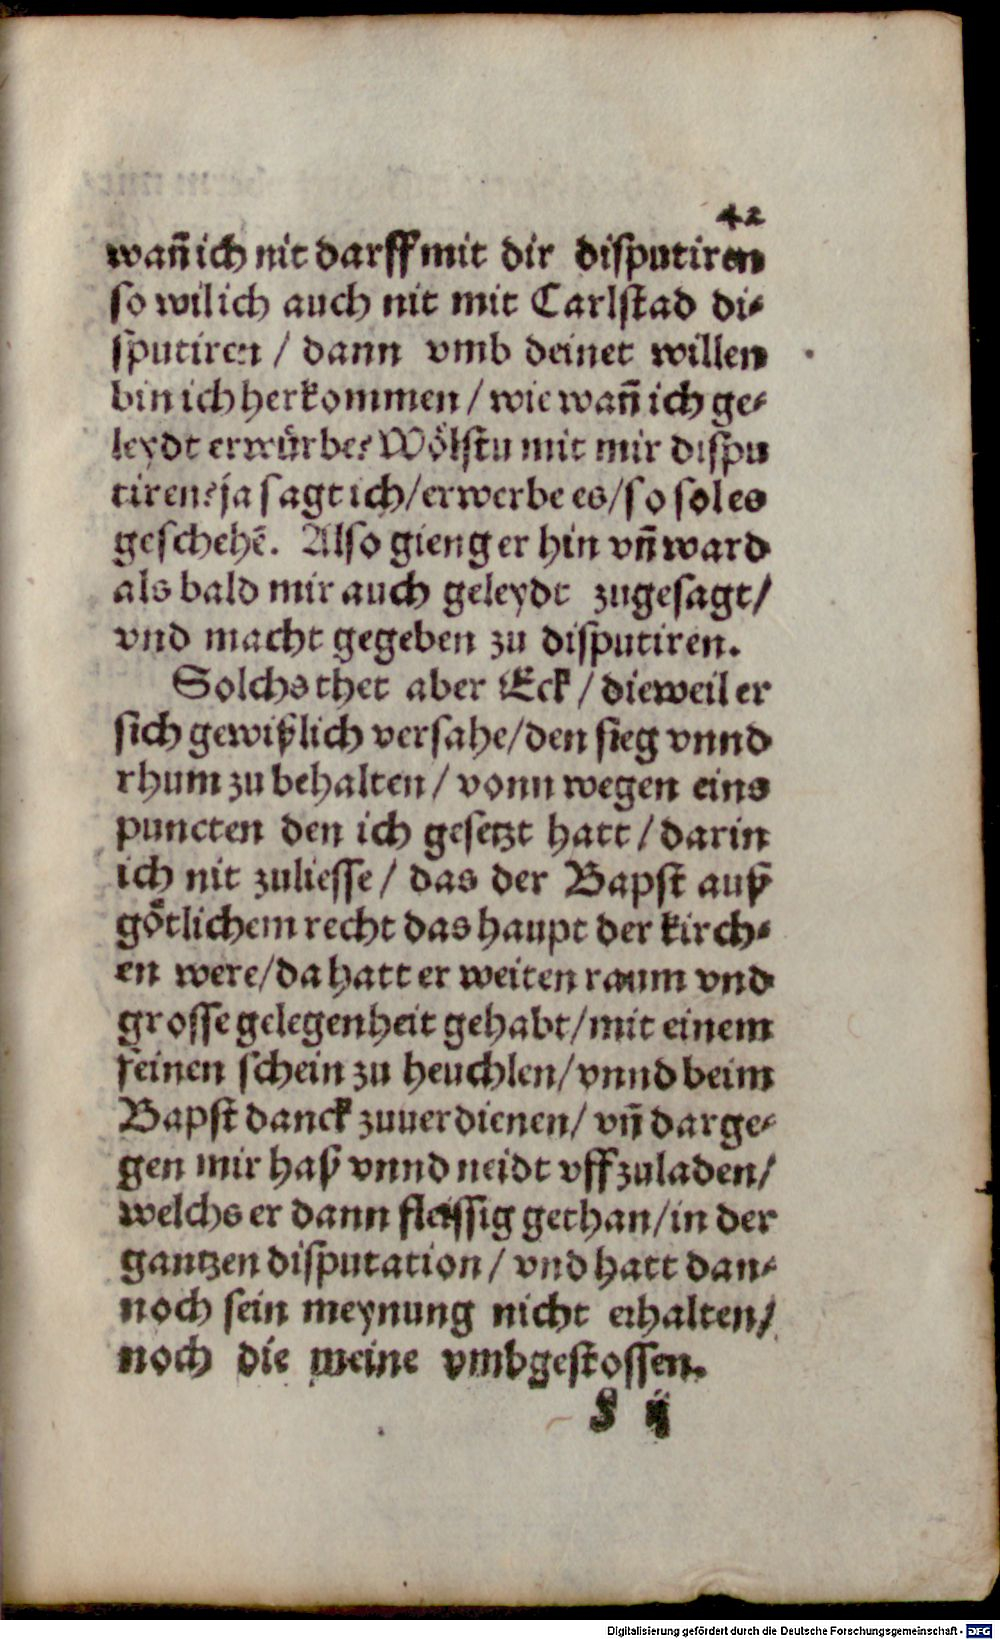 42
wañ ich nit darff mit dir disputiren
so wil ich auch nit mit Carlstad di-
sputiren / dann vmb deinet willen
bin ich herkommen / wie wañ ich ge-
leydt erwürbe? Wölstu mit mir dispu
tiren? ja sagt ich / erwerbe es / so sol es
geschehē. Also gieng er hin vñ ward
als bald mir auch geleydt zugesagt /
vnd macht gegeben zu disputiren.
Solchs thet aber Eck / dieweil er
sich gewißlich versahe / den sieg vnnd
rhum zu behalten / vonn wegen eins
puncten den ich gesetzt hatt / darin
ich nit zuliesse / das der Bapst auß
götlichem recht das haupt der kirch-
en were / da hatt er weiten raum vnd
grosse gelegenheit gehabt / mit einem
feinen schein zu heuchlen / vnnd beim
Bapst danck zuuerdienen / vñ darge-
gen mir haß vnnd neidt vff zuladen /
welchs er dann fleissig gethan / in der
gantzen disputation / vnd hatt dan-
noch sein meynung nicht erhalten /
noch die meine vmbgestossen.
F ij
Digitalisierung gefördert durch die Deutsche Forschungsgemeinschaft - DFG